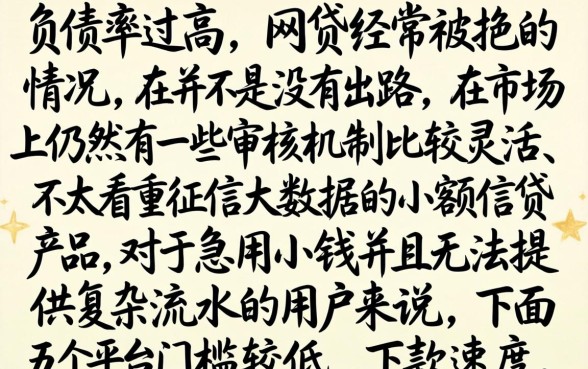 负债率过高，网贷经常被抢的
情况，在并不是没有出路，在市场
上仍然有一些审核机制比较灵活、
不太看重征信大数据的小额信贷
产品，对于急用小钱并且无法提
供复杂流水的用户来说，下面
五个平台门槛较低、下款速度